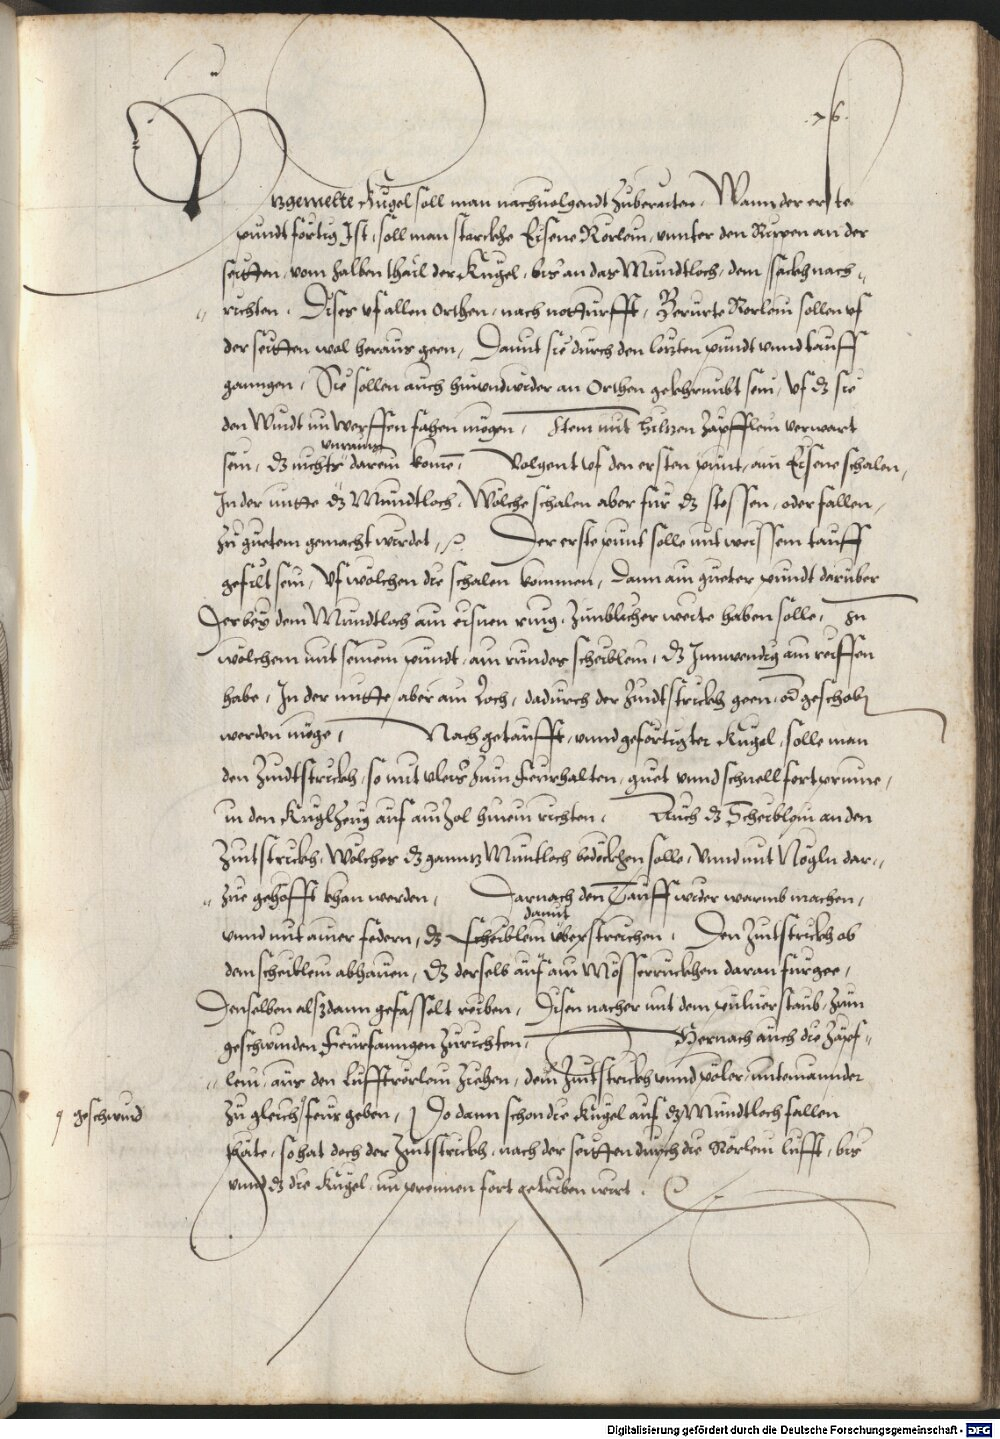 .76.
Vorgemelte Kugel soll man nachuolgendt Zuberaiten. Wann der erste
pundt förtig Ist, soll man starckhe Eisene Rörlein, vnnter den Rippen an der
seitten, vom halben thail der Kugel, bis an das Mundtloch, dem sackh nach,,
,, richten. Dises vf allen Orthen, nach notturfft, Berürte Rörlein sollen vf
der seitten wol heraus geen, Damit sie durch den letzten pundt vnnd tauff
ganngen, Sie sollen auch hinwidder an Orthen gekhrumbt sein, vf dz sie
den Windt im Werffen fahen mögen, Item mit hiltzen Zäpfflein verwart
sein, dz nichts vnrains darein kome. Volgent vf den ersten punt, ain Eisene schalen,
In der mitte dz Mundtloch, Wölche schalen aber für dz stossen, oder fallen,
Zu guetem gemacht wirdet, Der erste punt solle mit weissem tauff
gefilt sein, Vf wölchen die schalen kommen, Dann ain gueter pundt darüber
Der bey dem Mundtloch ain eisnen ring, Zimblicher weite haben solle, In
wölchem mit seinem pundt, ain runder scheiblein, dz Innwendig ain reiffen
habe, In der mitte aber ain Loch, dadurch der Zindtstrickh geen, od geschobn
werden möge, Nach getaufft, vnnd gefertigter Kugel, solle man
den Zindtstrickh, so mit vleis Zum feurhalten, guet vnnd schnell fort prinne,
in den Kuglzeug auf ain Zol hinein richten, Auch dz Scheiblein an den
Zintstrickh, Wölches dz ganntz Mundtloch bedeckhen solle, Vnnd mit Nögln dar,,
,, Zue gehöfft khan werden, Darnach den Tauff wider warmb machen,
vnnd mit ainer federn, dz scheiblein damit überstreichen. Den Zintstrickh ob
dem scheiblein abhauen, dz derselb auf ain Mösserruckhen daran fürgee,
Denselben alszdann gefasselt reiben, Disen nacher mit dem puluerstaub, Zum
geschwinden Feurfanngen Zurichten, Hernach auch die Zäpf,,
,, lein, aus den Lufftrörlein Ziehen, dem Zintstrickh vnnd Pöler, miteinannder
Zu gleich feur geben, Do dann schon die Kugel auf dz Mundtloch fallen
thäte, so hat doch der Zintstrickh, nach der seitten durch die Rörlein lufft, bis
vnnd dz die Kugel, im prennen fort getriben wirt.
geschwind
Digitalisierung gefördert durch die Deutsche Forschungsgemeinschaft - DFG